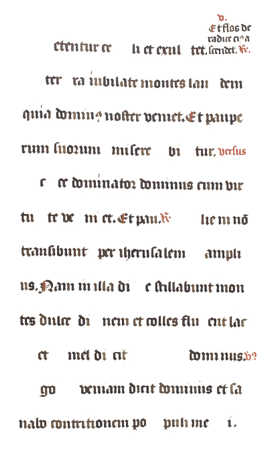 v.
Et flos de
radice ei9 a
scendet. R.
etentur ce li et exul tet.
ter ra iubilate montes lau dem
quia domin9 noster veniet. Et paupe
rum suorum misere bi tur. versus
e ce dominator dominus cum vir
tu te ve ni et. Et pau. R. lie m nō
transibunt per iherusalem ampli
us. Nam in illa di e stillabunt mon
tes dulce di nem et colles flu ent lac
et mel di cit dominus. v?
go veniam dicit dominus et sa
nabo contritionem po puli me i.